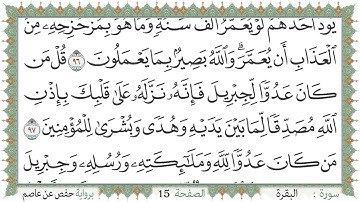 يَوَدُّ أَحَدُهُمْ لَوْ يُعَمَّرُ أَلْفَ سَنَةٍ وَمَا هُوَ بِمُزَحْزِحِهِۦ مِنَ
ٱلْعَذَابِ أَن يُعَمَّرَۗ وَٱللَّهُ بَصِيرٌۢ بِمَا يَعْمَلُونَ ٩٦ قُلْ مَن
كَانَ عَدُوًّا لِّجِبْرِيلَ فَإِنَّهُۥ نَزَّلَهُۥ عَلَىٰ قَلْبِكَ بِإِذْنِ
ٱللَّهِ مُصَدِّقًا لِّمَا بَيْنَ يَدَيْهِ وَهُدًى وَبُشْرَىٰ لِلْمُؤْمِنِينَ ٩٧
مَن كَانَ عَدُوًّا لِّلَّهِ وَمَلَٰٓئِكَتِهِۦ وَرُسُلِهِۦ وَجِبْرِيلَ
سورة : البقرة الصفحة 15 برواية حفص عن عاصم